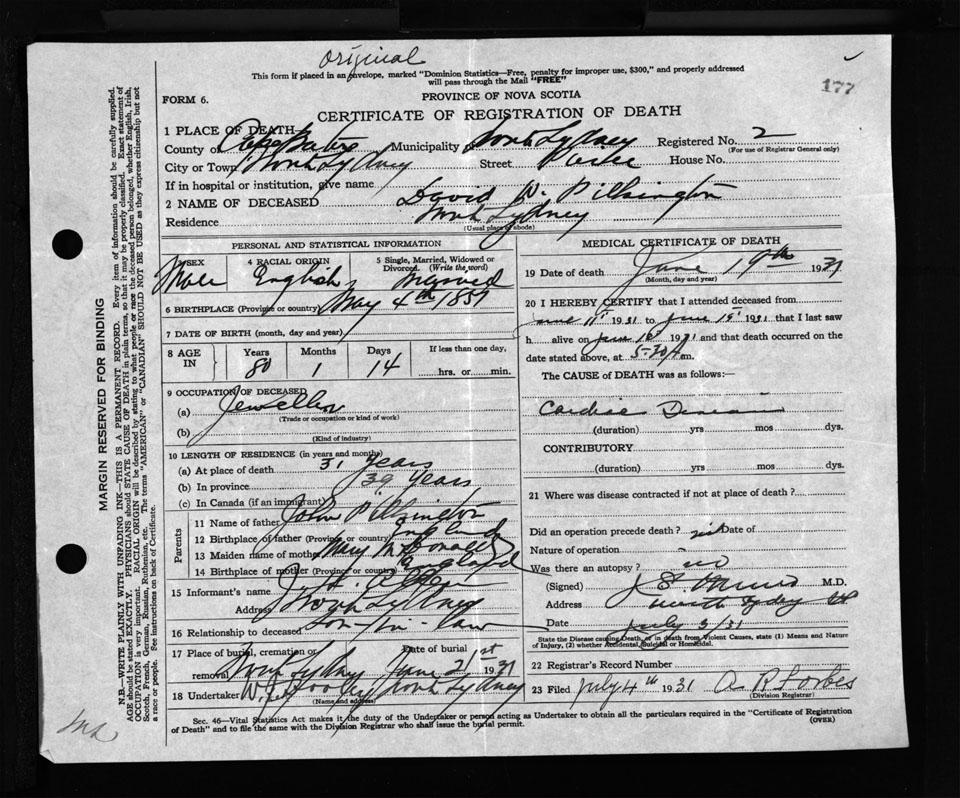 original
This form if placed in an envelope, marked "Dominion Statistics—Free, penalty for improper use, $300," and properly addressed
will pass through the Mail "FREE"
177
FORM 6.
PROVINCE OF NOVA SCOTIA
CERTIFICATE OF REGISTRATION OF DEATH
1 PLACE OF DEATH
County of Cape Breton Municipality of North Sydney Registered No. 2
(For use of Registrar General only)
City or Town North Sydney Street House No.
If in hospital or institution, give name
2 NAME OF DECEASED David W. Pilkington
Residence North Sydney
(Usual place of abode)
PERSONAL AND STATISTICAL INFORMATION
3 SEX Male
4 RACIAL ORIGIN English
5 Single, Married, Widowed or Divorced. (Write the word)
6 BIRTHPLACE (Province or country) May 4th 1851
7 DATE OF BIRTH (month, day and year)
8 AGE IN Years 80 Months 1 Days 14 If less than one day, hrs. or min.
9 OCCUPATION OF DECEASED
(a) Jeweller
(Trade or occupation or kind of work)
(b)
(Kind of industry)
10 LENGTH OF RESIDENCE (in years and months)
(a) At place of death 31 years
(b) In province 39 years
(c) In Canada (if an immigrant)
Parents
11 Name of father John Pilkington
12 Birthplace of father (Province or country) England
13 Maiden name of mother Mary McDonald
14 Birthplace of mother (Province or country) England
15 Informant's name
Address North Sydney
16 Relationship to deceased son-in-law
17 Place of burial, cremation or removal North Sydney Date of burial June 21st 1931
18 Undertaker North Sydney
(Name and address)
MEDICAL CERTIFICATE OF DEATH
19 Date of death June 19th 1931
(Month, day and year)
20 I HEREBY CERTIFY that I attended deceased from
June 11" 1931 to June 1931 that I last saw
h alive on June 1931 and that death occurred on the
date stated above, at 5-30 m.
The CAUSE of DEATH was as follows:—
Cardiac
(duration) yrs mos dys.
CONTRIBUTORY
(duration) yrs mos dys.
21 Where was disease contracted if not at place of death?
Did an operation precede death? Date of
Nature of operation
Was there an autopsy? no
(Signed) M.D.
Address North Sydney
Date July 3/31
State the Disease causing Death, or in death from Violent Causes, state (1) Means and Nature
of Injury, (2) whether Accidental, Suicidal or Homicidal.
22 Registrar's Record Number
23 Filed July 4th 1931 A R Forbes
(Division Registrar)
Sec. 46—Vital Statistics Act makes it the duty of the Undertaker or person acting as Undertaker to obtain all the particulars required in the "Certificate of Registration
of Death" and to file the same with the Division Registrar who shall issue the burial permit.
(OVER)
MARGIN RESERVED FOR BINDING
N.B.—WRITE PLAINLY WITH UNFADING INK—THIS IS A PERMANENT RECORD. Every item of information should be carefully supplied.
AGE should be stated EXACTLY. PHYSICIANS should STATE CAUSE OF DEATH in plain terms, so that it may be properly classified. Exact statement of
OCCUPATION is very important. RACIAL ORIGIN will be described by stating to what people or race the deceased person belonged, whether English, Irish,
Scotch, French, German, Russian, Ruthenian, etc. The terms "AMERICAN" or "CANADIAN" SHOULD NOT BE USED as they express citizenship but not
a race or people. See instructions on back of Certificate.